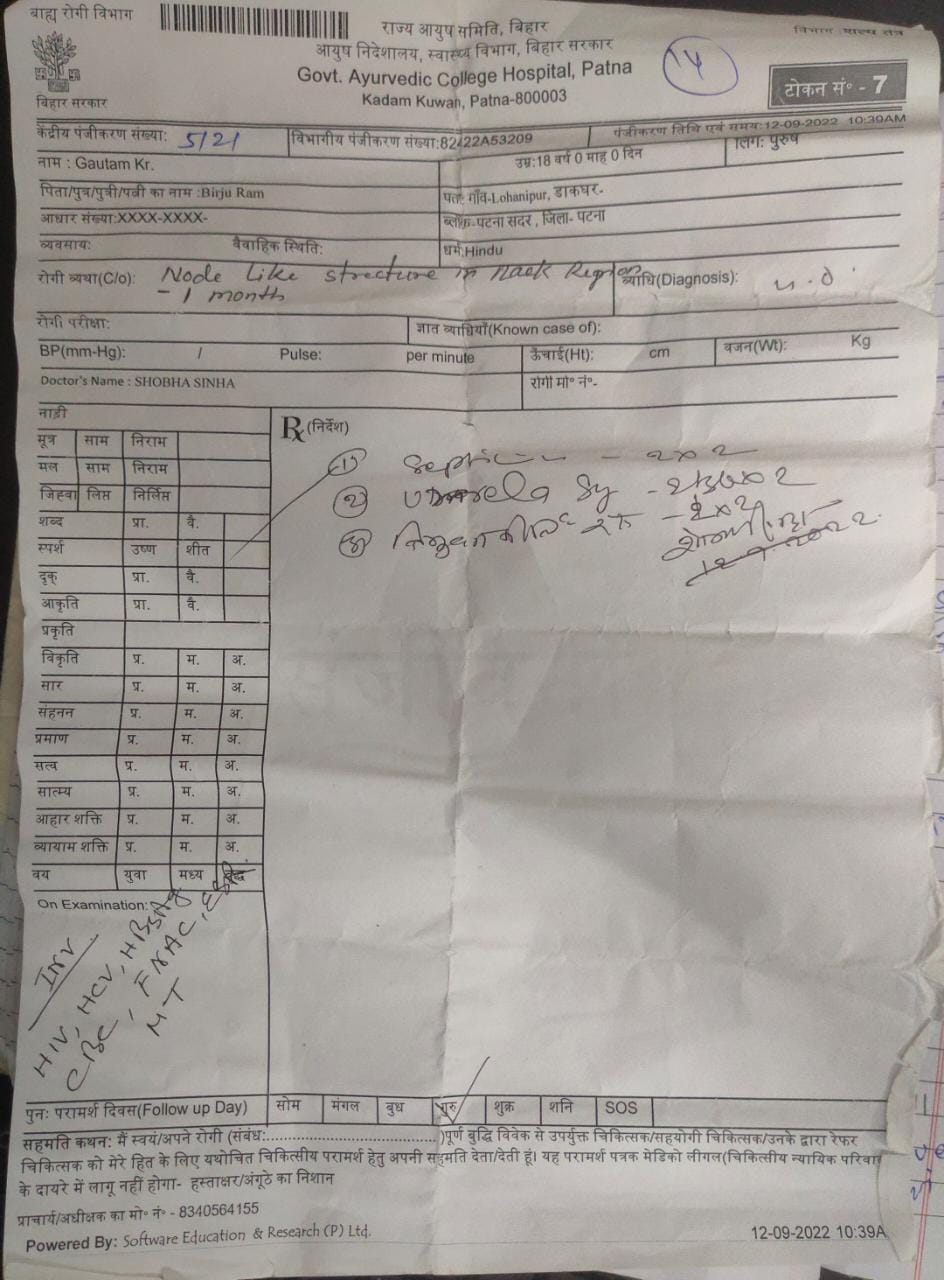 बाह्य रोगी विभाग
राज्य आयुष समिति, बिहार
आयुष निदेशालय, स्वास्थ्य विभाग, बिहार सरकार
Govt. Ayurvedic College Hospital, Patna
Kadam Kuwan, Patna-800003
14
टोकन सं० - 7
बिहार सरकार
केंद्रीय पंजीकरण संख्या: 5121 विभागीय पंजीकरण संख्या:82422A53209 पंजीकरण तिथि एवं समय:12-09-2022 10:39AM
नाम : Gautam Kr. उम्र:18 वर्ष 0 माह 0 दिन लिंग: पुरुष
पिता/पुत्र/पुत्री/पत्नी का नाम :Birju Ram पता: गाँव-Lohanipur, डाकघर-
आधार संख्या:XXXX-XXXX- ब्लॉक-पटना सदर , जिला- पटना
व्यवसाय: वैवाहिक स्थिति: धर्म:Hindu
रोगी व्यथा(C/o): Node Like structure in neck Region व्याधि(Diagnosis):
- 1 month
रोगी परीक्षा: ज्ञात व्याधियाँ(Known case of):
BP(mm-Hg): / Pulse: per minute ऊँचाई(Ht): cm वजन(Wt): Kg
Doctor's Name : SHOBHA SINHA रोगी मो० नं०-
नाड़ी
Rx (निर्देश)
मूत्र साम निराम
मल साम निराम
जिह्वा लिप्त निर्लिप्त
शब्द प्रा. वै.
स्पर्श उष्ण शीत
दृक् प्रा. वै.
आकृति प्रा. वै.
प्रकृति
विकृति प्र. म. अ.
सार प्र. म. अ.
संहनन प्र. म. अ.
प्रमाण प्र. म. अ.
सत्व प्र. म. अ.
सात्म्य प्र. म. अ.
आहार शक्ति प्र. म. अ.
व्यायाम शक्ति प्र. म. अ.
वय युवा मध्य वृद्ध
(1) - 2x2
(2) Sy
(3) - 2x2
12-9-2022
On Examination:
INV
HIV, HCV, HBSAg
CBC, FNAC, ESR
MT
पुनः परामर्श दिवस(Follow up Day) सोम मंगल बुध गुरु शुक्र शनि SOS
सहमति कथन: मैं स्वयं/अपने रोगी (संबंध:.....................................)पूर्ण बुद्धि विवेक से उपर्युक्त चिकित्सक/सहयोगी चिकित्सक/उनके द्वारा रेफर
चिकित्सक को मेरे हित के लिए यथोचित चिकित्सीय परामर्श हेतु अपनी सहमति देता/देती हूं। यह परामर्श पत्रक मेडिको लीगल(चिकित्सीय न्यायिक परिवाद
के दायरे में लागू नहीं होगा- हस्ताक्षर/अंगूठे का निशान
प्राचार्य/अधीक्षक का मो० नं० - 8340564155
Powered By: Software Education & Research (P) Ltd. 12-09-2022 10:39A